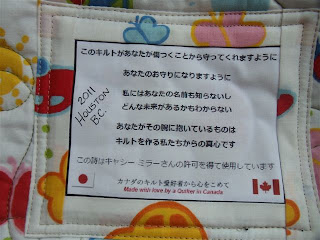 このキルトがあなたが傷つくことから守ってくれますように
あなたのお守りになりますように
私にはあなたの名前も知らないし
どんな未来があるかもわからない
あなたがその腕に抱いているものは
キルトを作る私たちからの真心です
この詩はキャシー ミラーさんの許可を得て使用しています
カナダのキルト愛好者から心をこめて
Made with love by a Quilter in Canada
2011
HOUSTON
B.C.